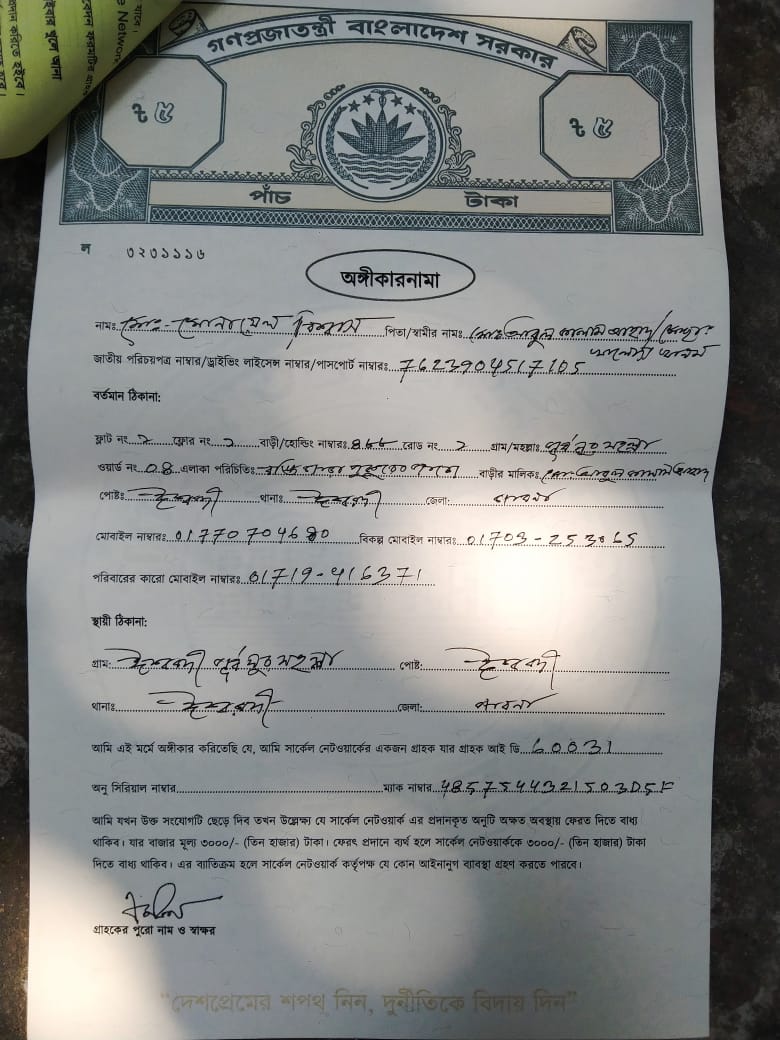 গণপ্রজাতন্ত্রী বাংলাদেশ সরকার
৳ ৫ ৳ ৫
পাঁচ টাকা
ল ৩২৩১১১৬
অঙ্গীকারনামা
নামঃ মোঃ- বিশ্বাস পিতা/স্বামীর নামঃ মোঃ আবুল কালাম আহাদ/
জাতীয় পরিচয়পত্র নাম্বার/ড্রাইভিং লাইসেন্স নাম্বার/পাসপোর্ট নাম্বারঃ 7623904517105
বর্তমান ঠিকানা:
ফ্লাট নং ২ ফ্লোর নং ১ বাড়ী/হোল্ডিং নাম্বারঃ ৪৮৮ রোড নং ২ গ্রাম/মহল্লাঃ পূর্ব নুর মহল্লা
ওয়ার্ড নং 08 এলাকা পরিচিতিঃ বাড়ীর মালিকঃ মোঃ আবুল কালাম আহাদ
পোষ্টঃ ঈশ্বরদী থানাঃ ঈশ্বরদী জেলা: পাবনা
মোবাইল নাম্বারঃ 01770704680 বিকল্প মোবাইল নাম্বারঃ 01703-253065
পরিবারের কারো মোবাইল নাম্বারঃ 01719-416371
স্থায়ী ঠিকানা:
গ্রাম: ঈশ্বরদী পূর্ব নুর মহল্লা পোষ্ট: ঈশ্বরদী
থানাঃ ঈশ্বরদী জেলা: পাবনা
আমি এই মর্মে অঙ্গীকার করিতেছি যে, আমি সার্কেল নেটওয়ার্কের একজন গ্রাহক যার গ্রাহক আই ডি 60031
অনু সিরিয়াল নাম্বার ম্যাক নাম্বার 4857544321503D5F
আমি যখন উক্ত সংযোগটি ছেড়ে দিব তখন উল্লেক্ষ্য যে সার্কেল নেটওয়ার্ক এর প্রদানকৃত অনুটি অক্ষত অবস্থায় ফেরত দিতে বাধ্য
থাকিব। যার বাজার মূল্য ৩০০০/- (তিন হাজার) টাকা। ফেরৎ প্রদানে ব্যর্থ হলে সার্কেল নেটওয়ার্ককে ৩০০০/- (তিন হাজার) টাকা
দিতে বাধ্য থাকিব। এর ব্যাতিক্রম হলে সার্কেল নেটওয়ার্ক কর্তৃপক্ষ যে কোন আইনানুগ ব্যাবস্থা গ্রহণ করতে পারবে।
গ্রাহকের পুরো নাম ও স্বাক্ষর
“দেশপ্রেমের শপথ নিন, দুর্নীতিকে বিদায় দিন”